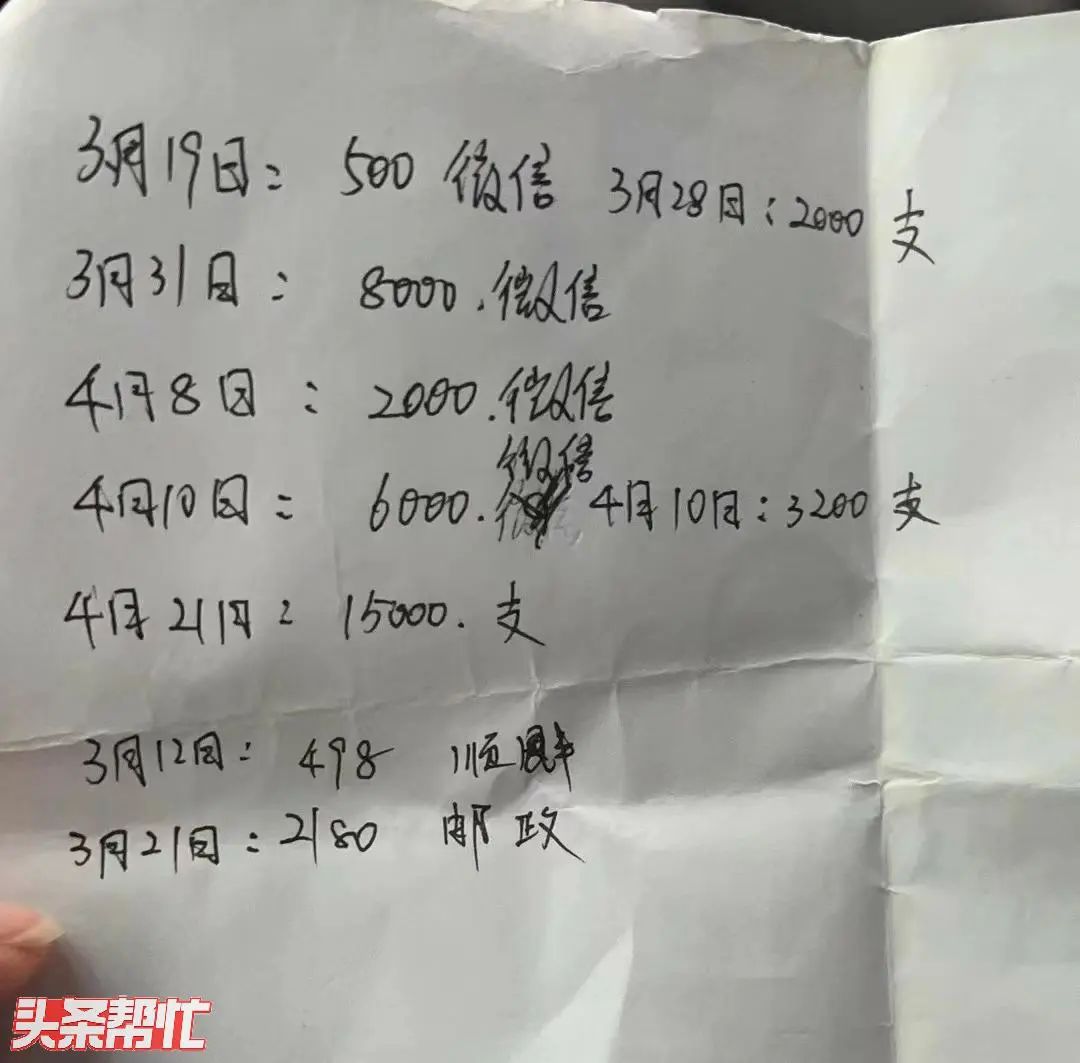 3月19日: 500 微信 3月28日: 2000 支
3月31日: 8000.微信
4月8日: 2000.微信
微信
4月10日: 6000. 4月10日: 3200 支
4月21日: 15000. 支
3月12日: 498 顺丰
3月21日: 2180 邮政
头条帮忙